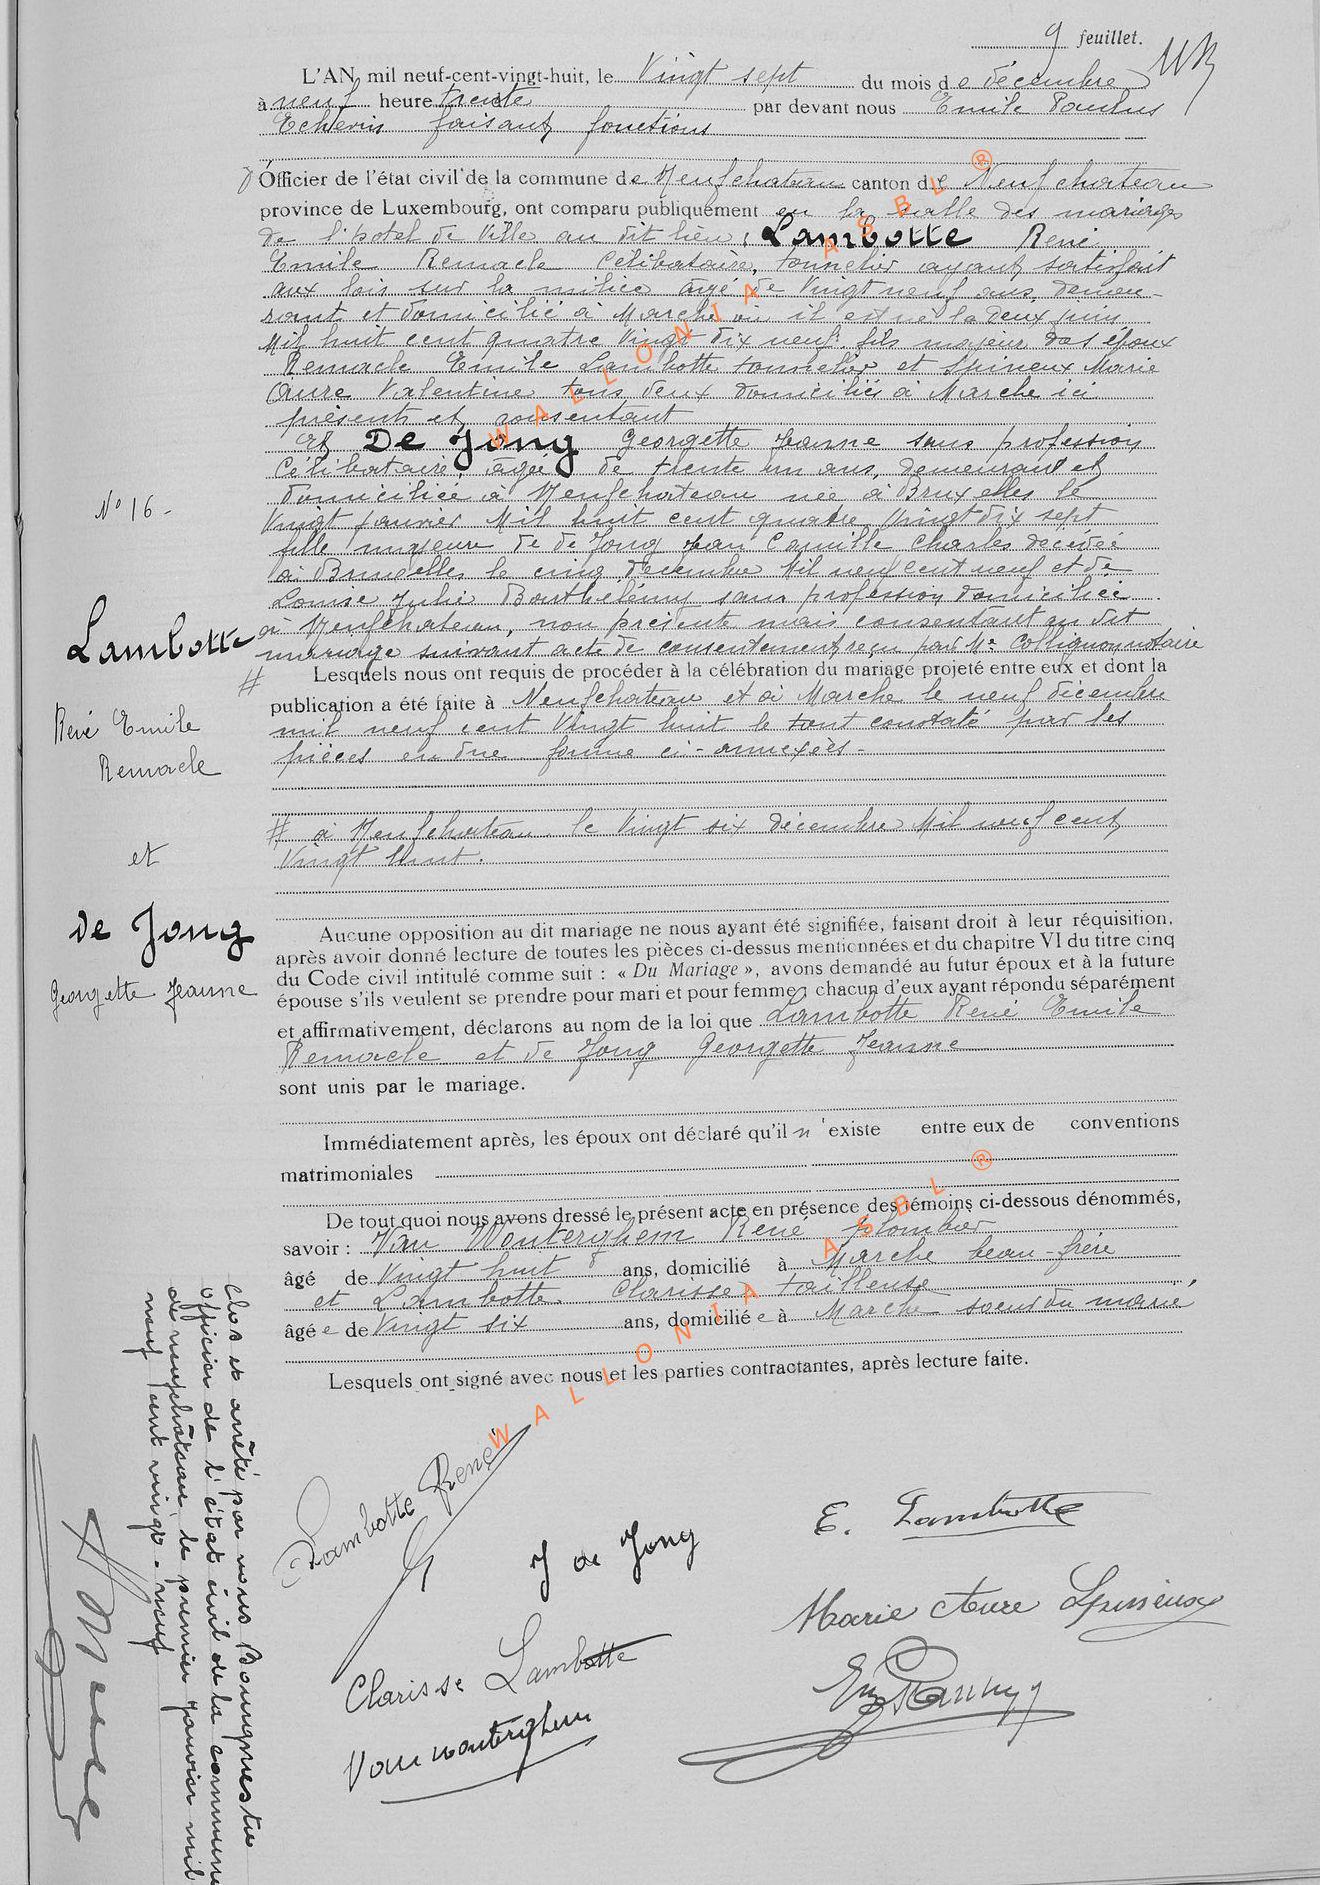 9 feuillet.
L'AN mil neuf-cent-vingt-huit, le Vingt sept du mois de décembre
à neuf heure trente par devant nous Emile Paulus
Echevin faisant fonctions
Officier de l'état civil de la commune de Neufchateau canton de Neufchateau
province de Luxembourg, ont comparu publiquement en la salle des mariages
de l'hotel de Ville au dit lieu : Lambotte René
Emile Remacle célibataire, tonnelier ayant satisfait
aux lois sur la milice âgé de Vingt neuf ans, demeu-
rant et domicilié à Marche où il est né le deux juin
Mil huit cent quatre Vingt dix neuf. fils majeur des époux
Remacle Emile Lambotte tonnelier et Spineux Marie
Aure Valentine tous deux domiciliés à Marche ici
présents et consentant
Et De Jong Georgette Jeanne sans profession
Célibataire, âgée de trente un ans, demeurant et
domiciliée à Neufchateau née à Bruxelles le
Vingt janvier Mil huit cent quatre Vingt dix sept
fille majeure de de Jong Jean Camille Charles décédé
à Bruxelles le cinq décembre Mil neuf cent neuf et de
Louise Julie Barthélémy sans profession domiciliée
à Neufchateau, non présente mais consentant au dit
mariage suivant acte de consentement reçu par Me Collignon notaire
# Lesquels nous ont requis de procéder à la célébration du mariage projeté entre eux et dont la
publication a été faite à Neufchateau et à Marche le neuf décembre
mil neuf cent Vingt huit le tout constaté par les
pièces en due forme ci-annexées -
# à Neufchateau le Vingt six décembre Mil neuf cent
Vingt huit.
Aucune opposition au dit mariage ne nous ayant été signifiée, faisant droit à leur réquisition,
après avoir donné lecture de toutes les pièces ci-dessus mentionnées et du chapitre VI du titre cinq
du Code civil intitulé comme suit : « Du Mariage », avons demandé au futur époux et à la future
épouse s'ils veulent se prendre pour mari et pour femme; chacun d'eux ayant répondu séparément
et affirmativement, déclarons au nom de la loi que Lambotte René Emile
Remacle et de Jong Georgette Jeanne
sont unis par le mariage.
Immédiatement après, les époux ont déclaré qu'il n'existe entre eux de conventions
matrimoniales
De tout quoi nous avons dressé le présent acte en présence des témoins ci-dessous dénommés,
savoir : Van Wonterghem René plombier
âgé de Vingt huit ans, domicilié à Marche beau-frère
et Lambotte Clarisse tailleuse
âgée de Vingt six ans, domiciliée à Marche soeur du marié
Lesquels ont signé avec nous et les parties contractantes, après lecture faite.
Lambotte René
J de Jong
E. Lambotte
Marie Aure Spineux
Clarisse Lambotte
Vanwonterghem
N° 16 -
Lambotte
René Emile
Remacle
et
De Jong
Georgette Jeanne
Clos et arrêté par nous
officier de l'état civil de la commune
de neufchâteau le premier janvier mil
neuf cent vingt-neuf
WALLONIA ASBL ®
WALLONIA ASBL ®